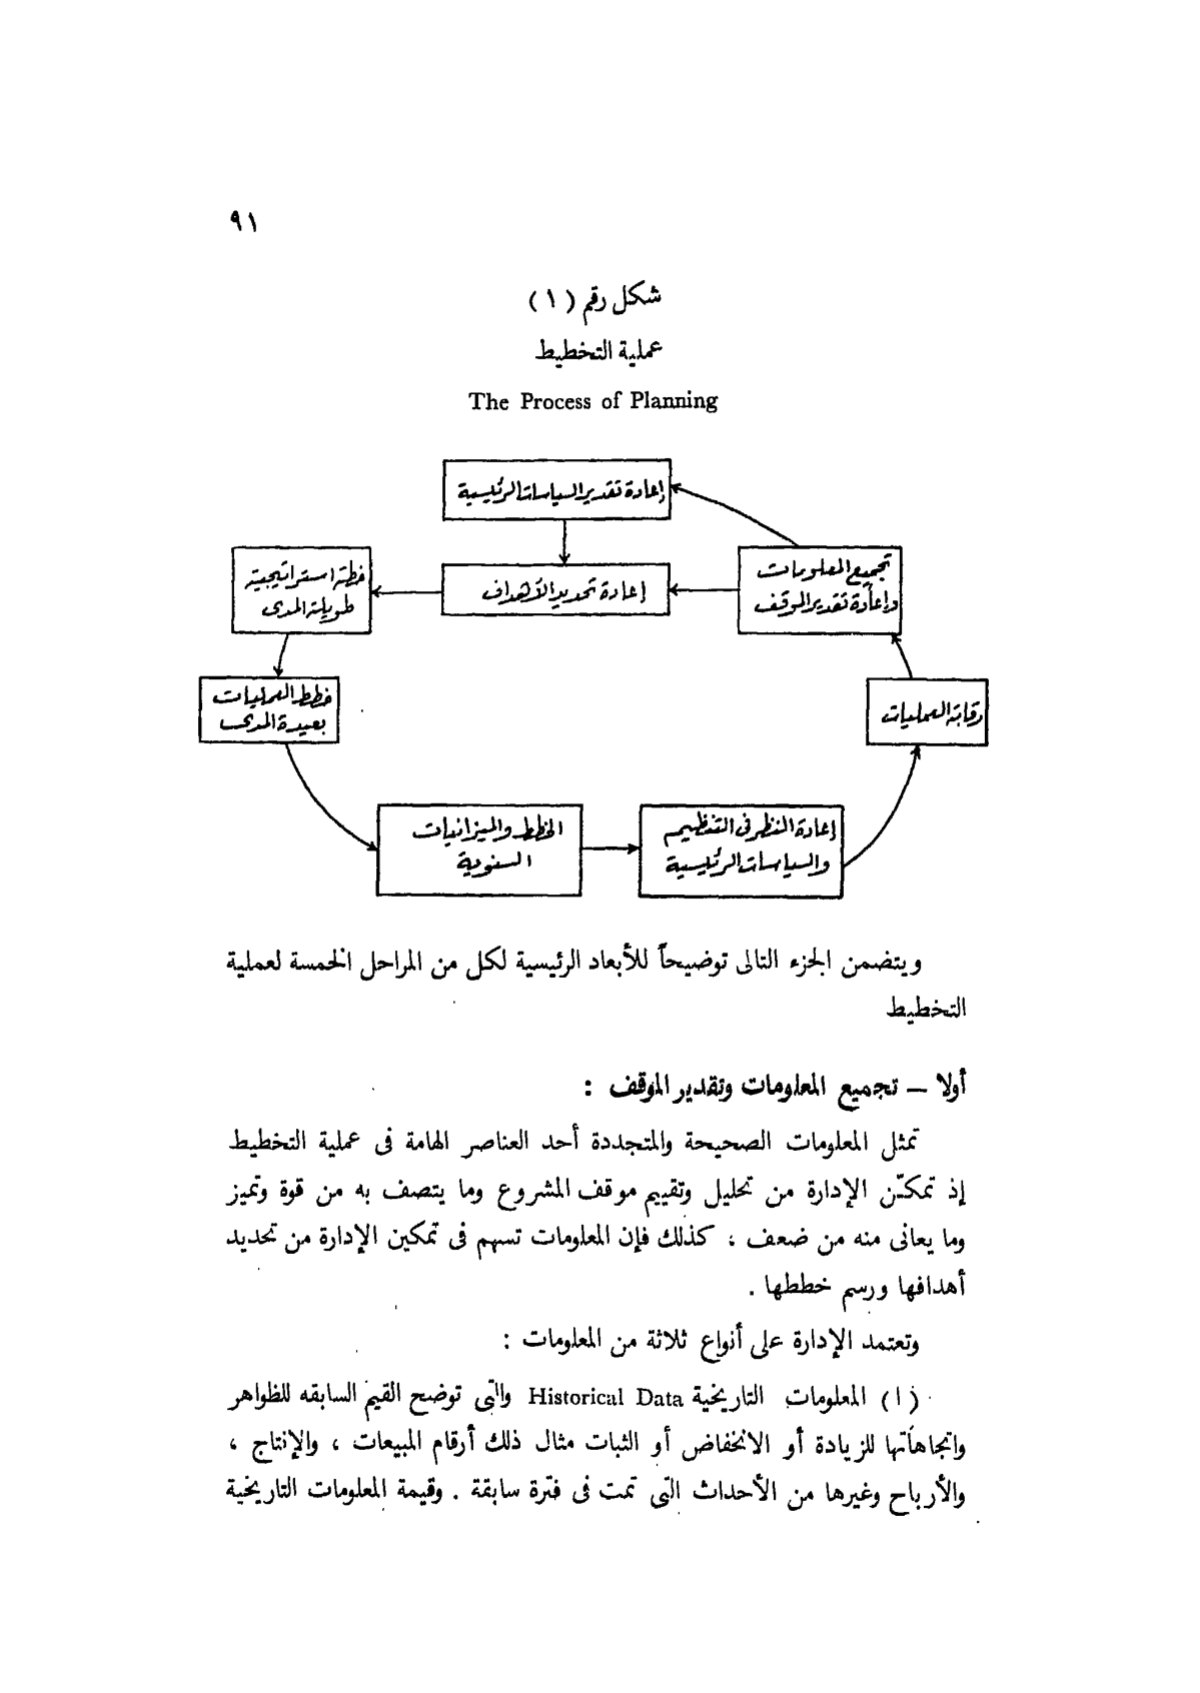 ٩١
شكل رقم ( ١ )
عملية التخطيط
The Process of Planning
إعادة تقدير السياسات الرئيسية
تجميع المعلومات
وإعادة تقدير الموقف
إعادة تحديد الأهداف
خطة استراتيجية
طويلة المدى
خطط العمليات
بعيدة المدى
رقابة العمليات
الخطط والميزانيات
السنوية
إعادة النظر فى التنظيم
والسياسات الرئيسية
ويتضمن الجزء التالى توضيحاً للأبعاد الرئيسية لكل من المراحل الخمسة لعملية
التخطيط
أولا — تجميع المعلومات وتقدير الموقف :
تمثل المعلومات الصحيحة والمتجددة أحد العناصر الهامة فى عملية التخطيط
إذ تمكّن الإدارة من تحليل وتقييم موقف المشروع وما يتصف به من قوة وتميز
وما يعانى منه من ضعف ، كذلك فإن المعلومات تسهم فى تمكين الإدارة من تحديد
أهدافها ورسم خططها .
وتعتمد الإدارة على أنواع ثلاثة من المعلومات :
( ا ) المعلومات التاريخية Historical Data والتى توضح القيم السابقه للظواهر
واتجاهاتها للزيادة أو الانخفاض أو الثبات مثال ذلك أرقام المبيعات ، والإنتاج ،
والأرباح وغيرها من الأحداث التى تمت فى فترة سابقة . وقيمة المعلومات التاريخية